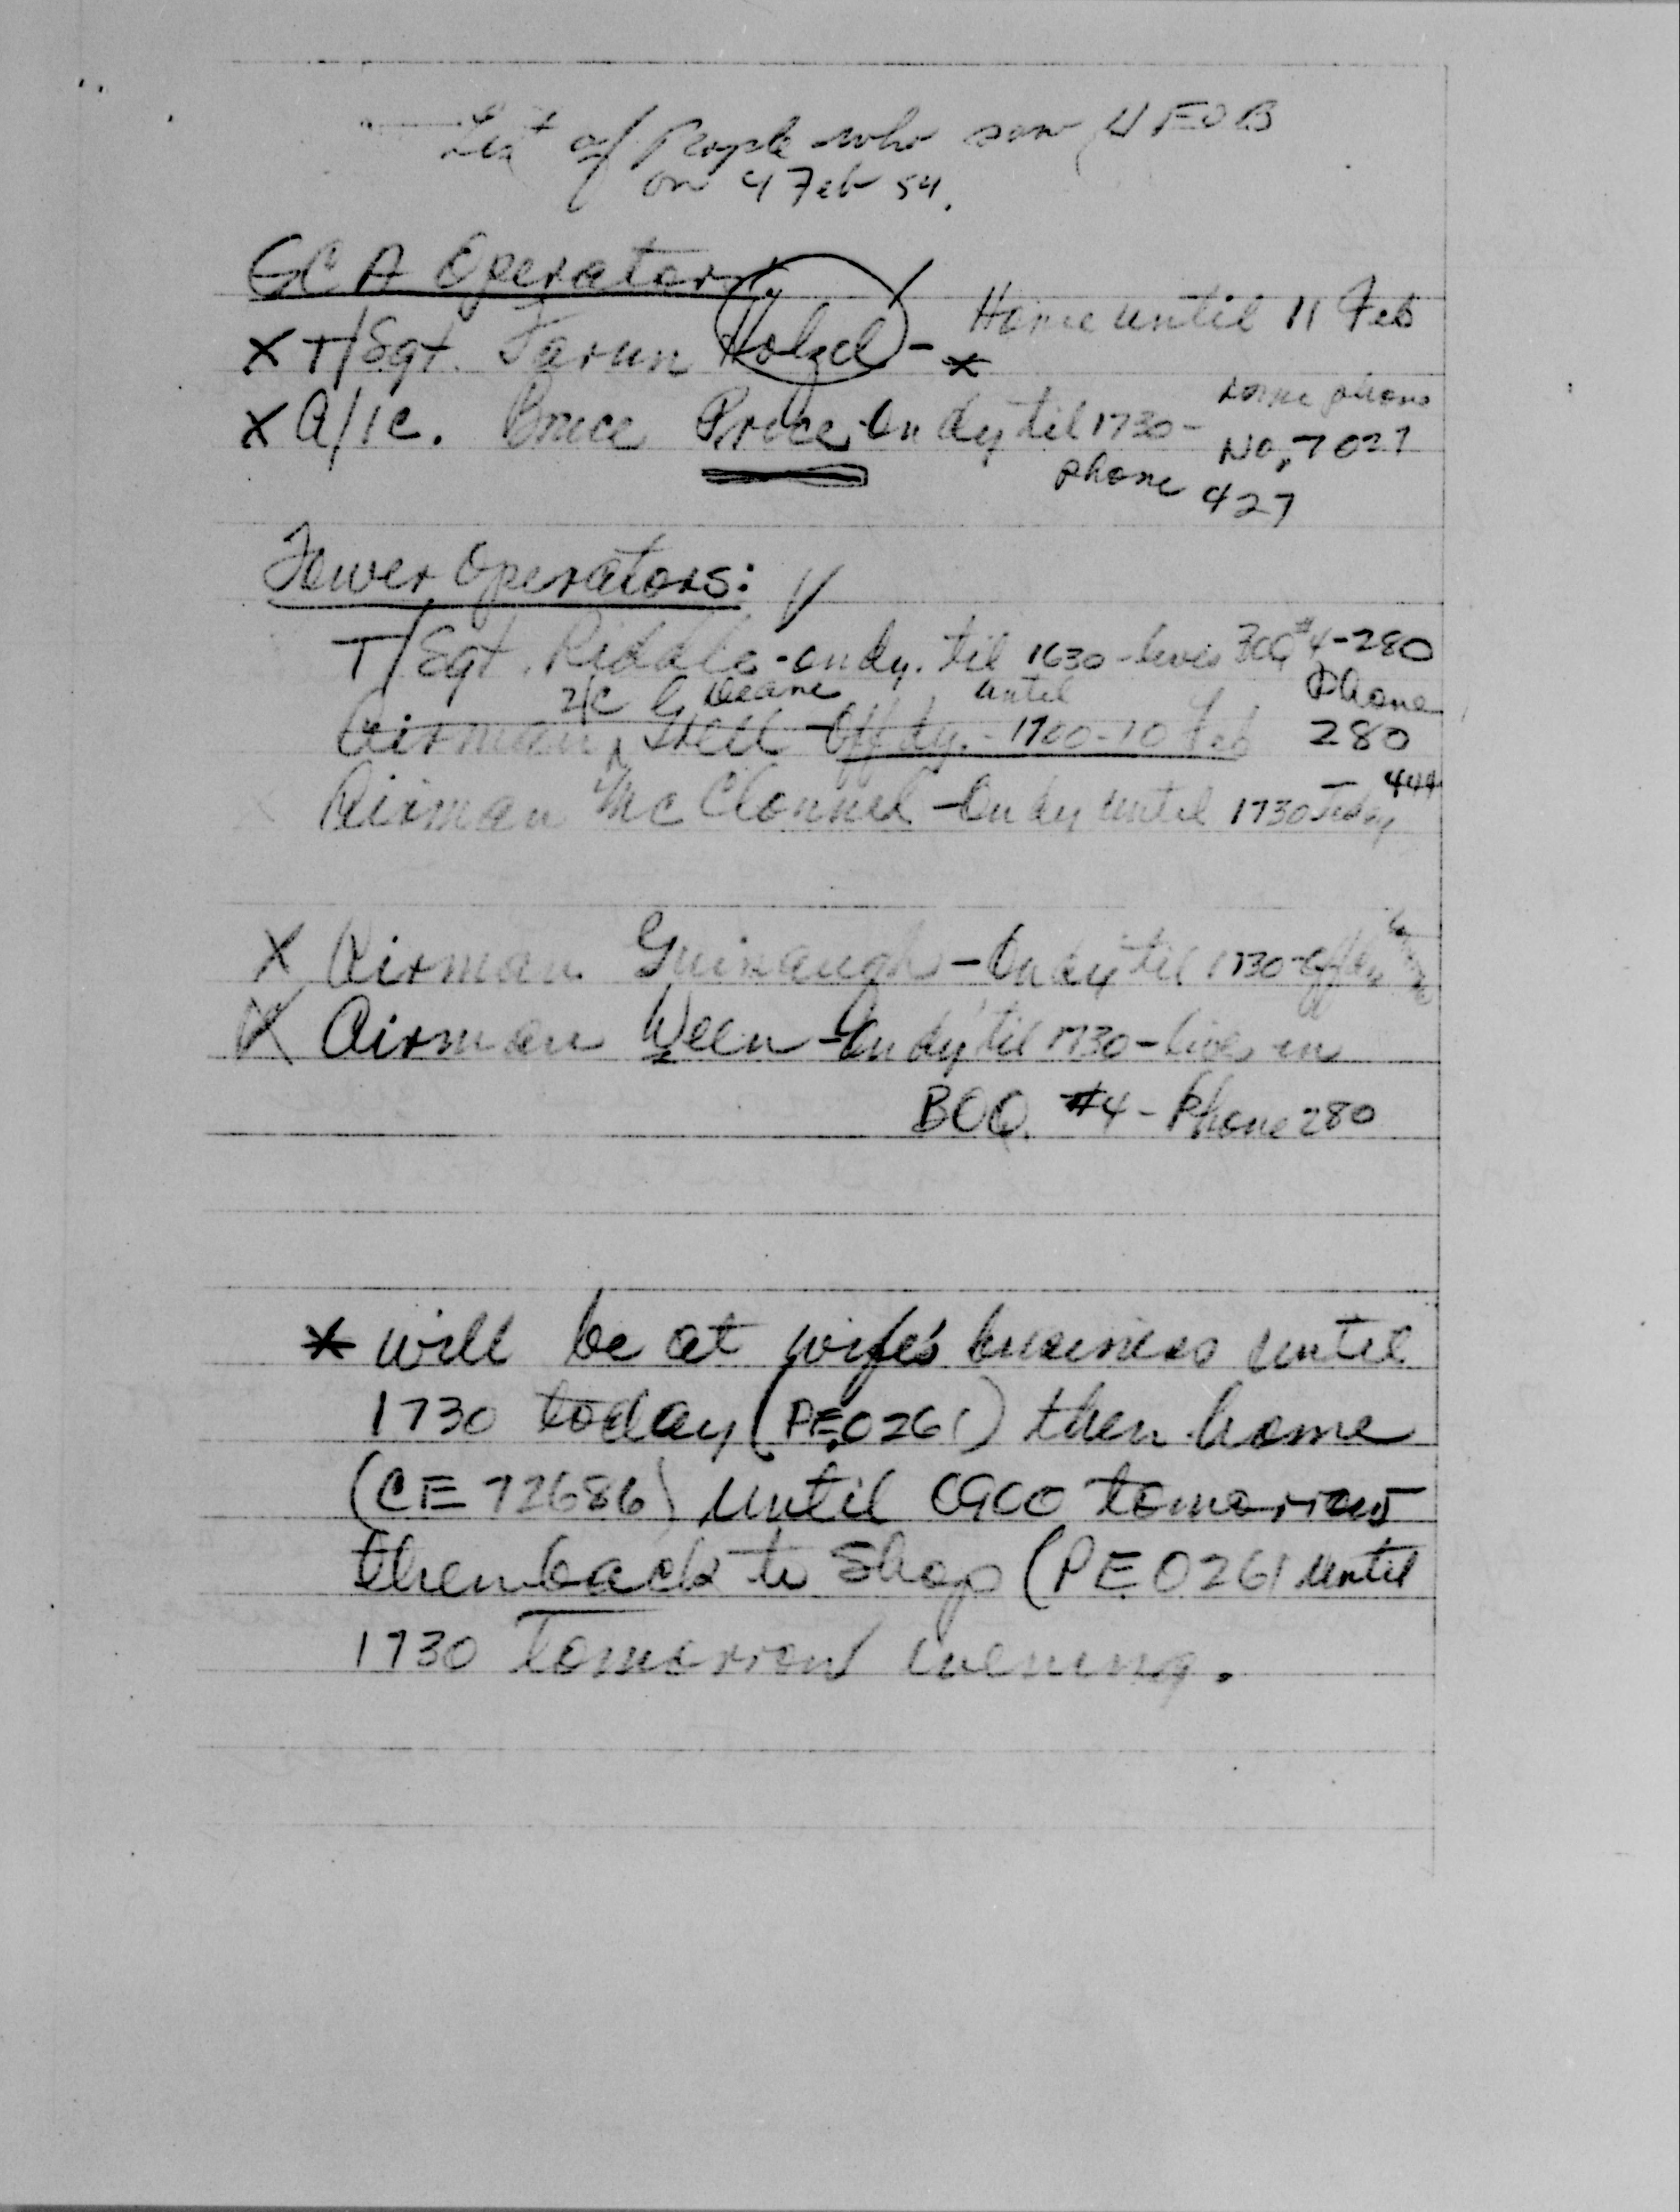 List of People who saw UFOB
on 4 Feb 54.
GCA Operators
X T/Sgt. Holzel - * Home until 11 Feb
X A/1c. Bruce On dy til 1730 - home phone No. 7027
phone 427
Tower Operators:
T/Sgt. Riddle - on dy. til 1630 - lives BOQ #4-280
2/C G Deane until Phone
Airman Off dy. - 1700-10 Feb 280
Airman McClonnel - On dy until 1730 today - 444
X Airman - On dy til 1730 - off
X Airman Ween - On dy til 1730 - lives in
BOQ. #4 - Phone 280
* will be at wife's business until
1730 today (PE0261) then home
(CE 72686) until 0900 tomorrow
then back to shop (PE0261 until
1730 Tomorrow evening.